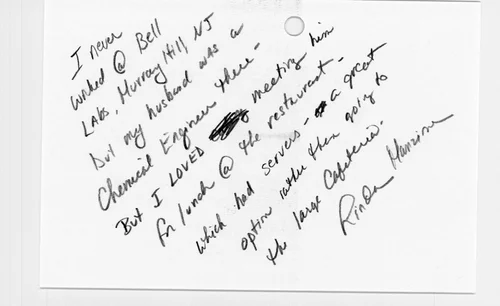 I never
worked @ Bell
Labs, Murray Hill, NJ
but my husband was a
Chemical Engineer there -
But I LOVED meeting him
for lunch @ the restaurant -
which had servers - a great
option rather then going to
the large Cafeteria.
Rinda